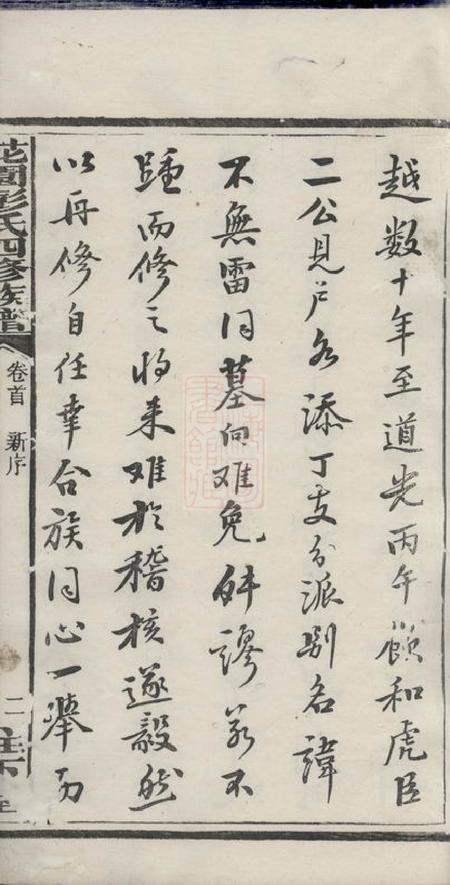 越數十年至道光丙午嶺和虎臣
二公見戶各添丁支分派別名諱
不無雷同墓向難免舛謬若不
踵而修之將來難於稽核遂毅然
以再修自任幸合族同心一舉而
花園彭氏四修族譜
卷首 新序
二